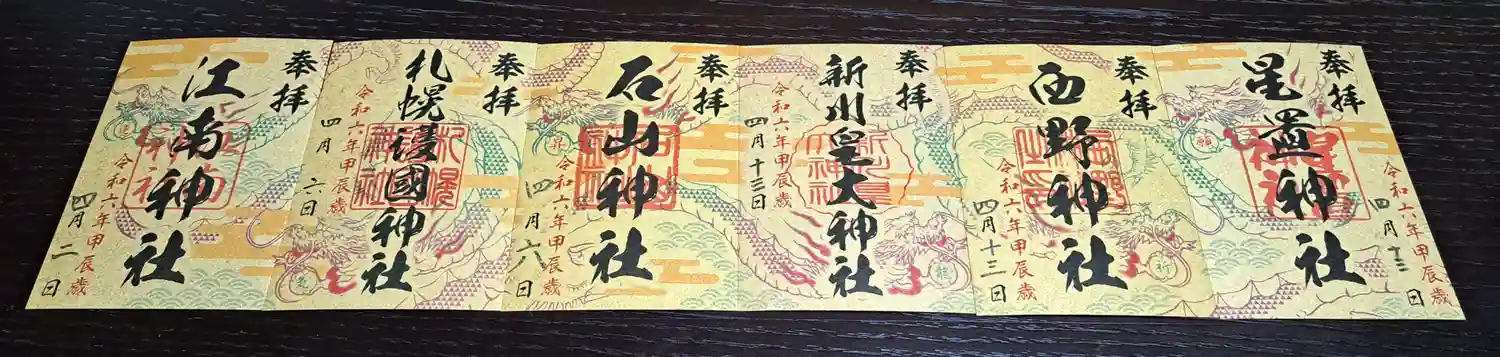 奉拝
江南神社
令和六年甲辰歳
四月二日
奉拝
札幌護國神社
令和六年甲辰歳
四月六日
奉拝
石山神社
令和六年甲辰歳
四月六日
昇
奉拝
新川皇大神社
令和六年甲辰歳
四月十三日
龍
奉拝
西野神社
令和六年甲辰歳
四月十三日
祈
奉拝
星置神社
令和六年甲辰歳
四月十三日
願